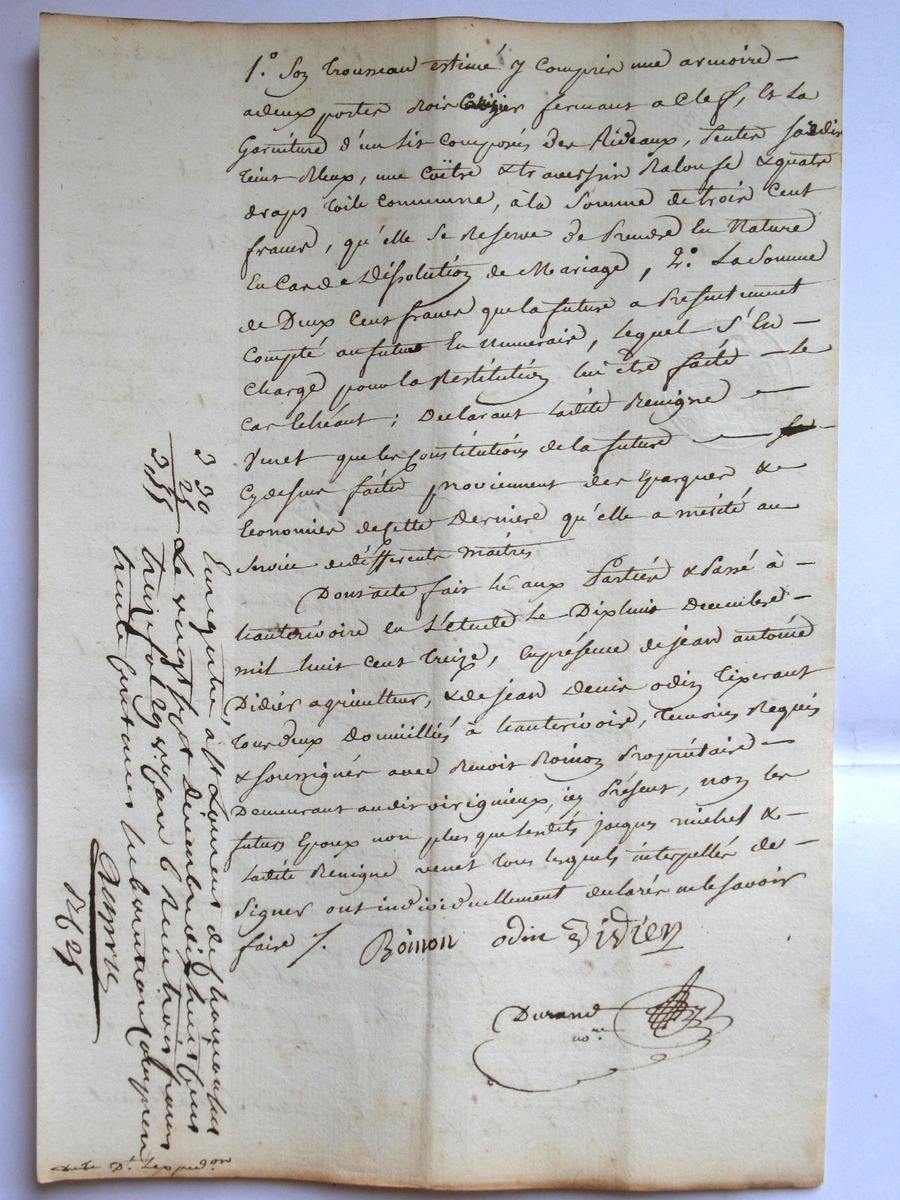 1.° Son trousseau estimé y compris une armoire —
adeux portes bois Cerizier fermant a Clef, et La
Garniture d'un Lit composés des Rideaux, pentes
teint Bleux, une Coëtre & traversin Balouse & quatre
draps toile commune, à la somme de trois Cent
francs, qu'elle se Reserve de Prendre En Nature
En Cas de Dissolution de Mariage, 2.° La Somme
de Deux Cent francs que la future a Présentement
Compté au futur En Numeraire, lequel s'En —
Charge pour la Restitution lui être faite — le
cas Echéant; Déclarant Ladite Benigne —
Venet que les Constitutions de la future —
Cydessus faites proviennent des Epargnes &
Economies de cette Derniere qu'elle a mérité au
Service de différents maîtres
Dont acte fait lû aux Parties & Passé à —
hauterivoire en L'étude Le Dixhuit Decembre —
mil huit Cent treize, En présence de jean antoine
Didier agriculteur, & de jean Denis odin
tous Deux Domiciliés à hauterivoire, temoins Requis
& soussignés avec Benoit Boinon Propriétaire —
Demeurant audit virignieux, icy Présent, non les
futurs Epoux non plus que lesdits jacques michel & —
Ladite Benigne venet tous lesquels interpellés de —
Signer ont individuellement declarés ne le savoir
faire /.
Boinon odin Didier
Durand
no.re
Enregistré a St Laurent de chamousset
Le vingthuit decembre dixhuit cent
treize fol. 29 Reçu trois francs
trente centimes
3 30
25
3,55